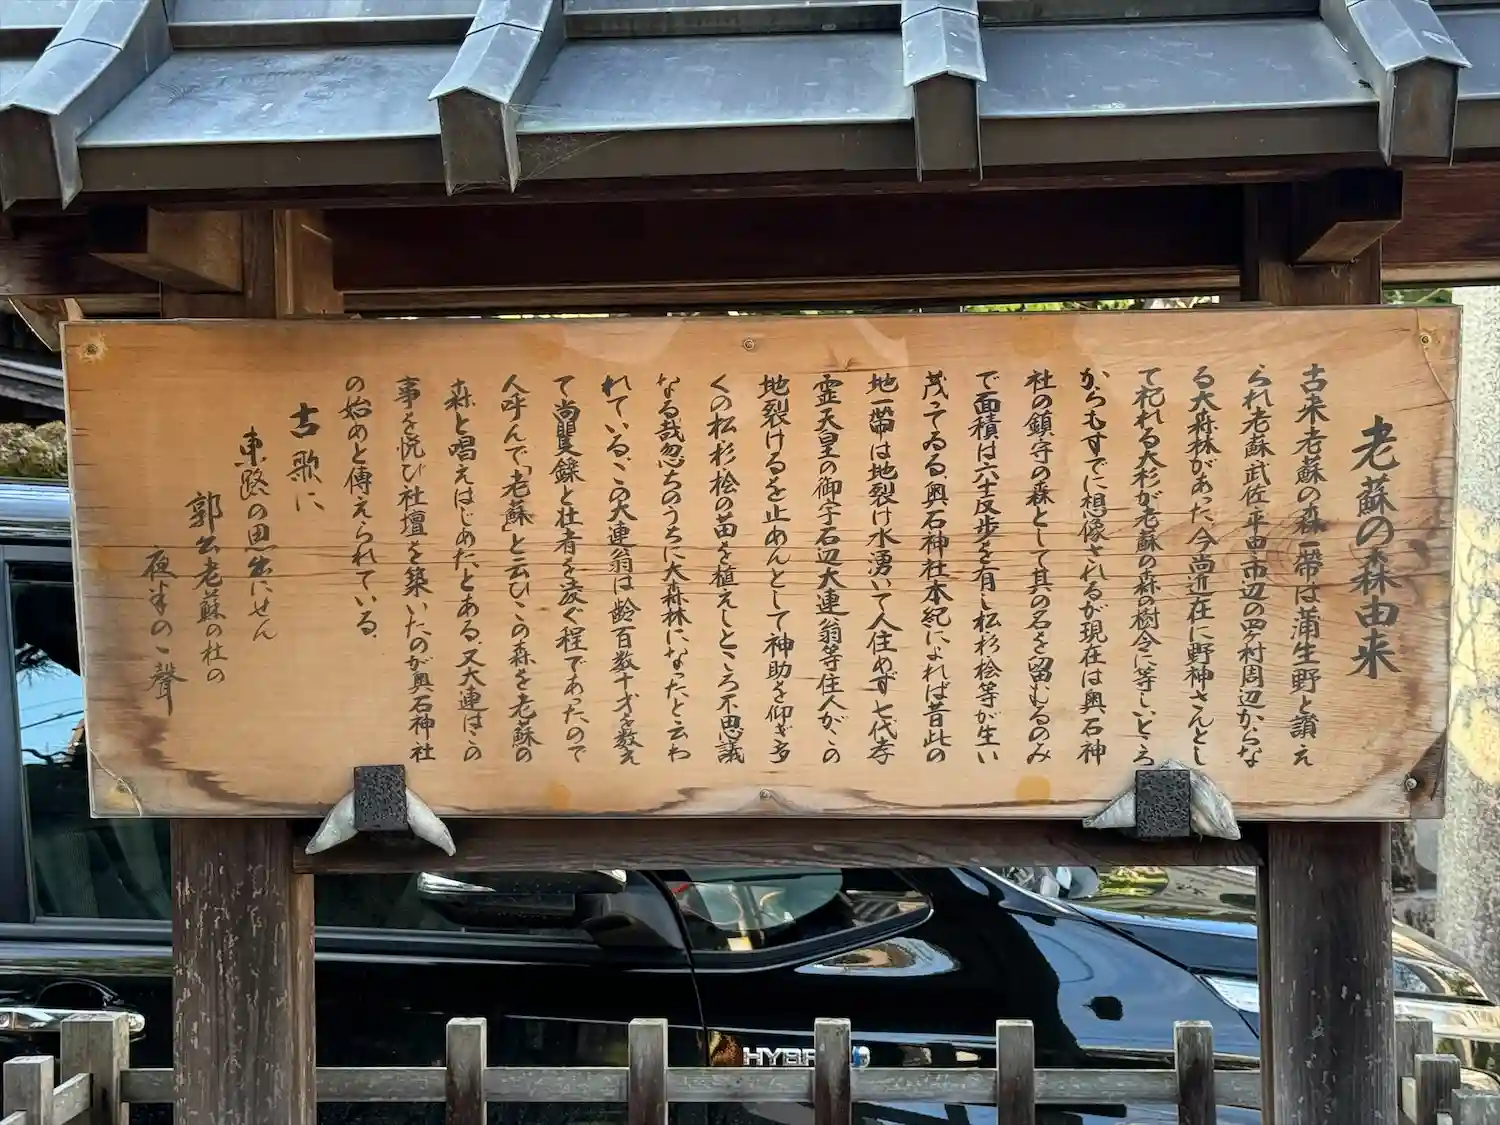 老蘇の森由来
古来老蘇の森一帯は蒲生野と讃え
られ老蘇武佐平田市辺の四ヶ村周辺からな
る大森林があった。今尚近在に野神さんとし
て祀れる大杉が老蘇の森の樹令に等しいところ
からもすでに想像されるが現在は奥石神
社の鎮守の森として其の名を留むるのみ
で面積は六十反歩を有し松杉桧等が生い
茂ってゐる奥石神社本紀によれば昔此の
地一帯は地裂け水湧いて人住めず七代孝
霊天皇の御宇石辺大連翁等住人がこの
地裂けるを止めんとして神助を仰ぎ多
くの松杉桧の苗を植えしところ不思議
なる哉忽ちのうちに大森林になったと云わ
れている。この大連翁は齢百数十才を数え
て尚矍鑠と壮者を凌ぐ程であったので
人呼んで「老蘇」と云ひこの森を老蘇の
森と唱えはじめたとある。又大連はこの
事を悦び社壇を築いたのが奥石神社
の始めと傳えられている。
古歌に
東路の思出にせん
郭公老蘇の杜の
夜半の一聲
HYBR